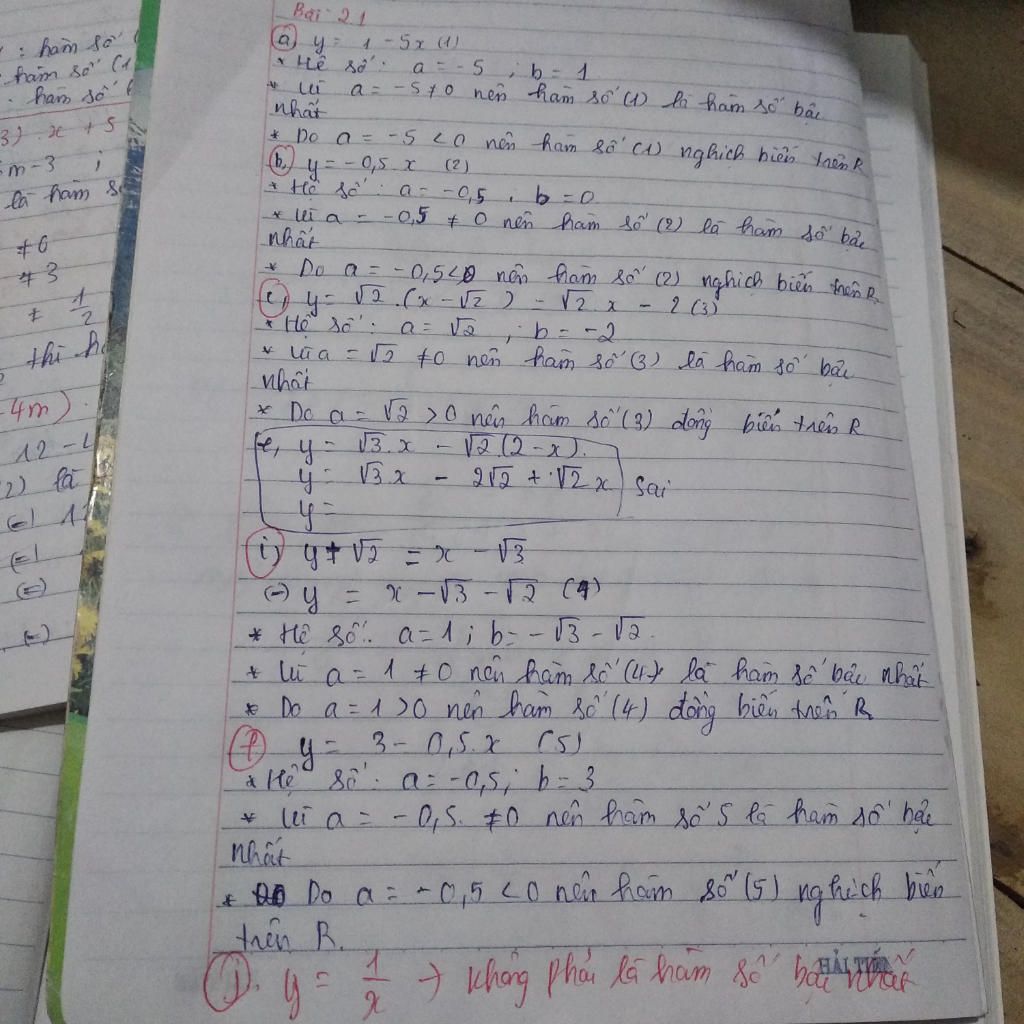 : hàm số
hàm số (1
hàm số
3) x + 5
m-3 ;
là hàm số
≠ 0
≠ 3
≠ 1/2
thì h
-4m)
12 - 4
2) là
(=) 1
(=)
(=)
(=)
Bài 2.1
a, y = 1 - 5x (1)
* Hệ số : a = -5 ; b = 1
* Vì a = -5 ≠ 0 nên hàm số (1) là hàm số bậc
nhất
* Do a = -5 < 0 nên hàm số (1) nghịch biến trên R
b, y = -0,5.x (2)
* Hệ số : a = -0,5 , b = 0
* Vì a = -0,5 ≠ 0 nên hàm số (2) là hàm số bậc
nhất
* Do a = -0,5 < 0 nên hàm số (2) nghịch biến trên R
c, y = √2.(x - √2) = √2.x - 2 (3)
* Hệ số : a = √2 ; b = -2
* Vì a = √2 ≠ 0 nên hàm số (3) là hàm số bậc
nhất
* Do a = √2 > 0 nên hàm số (3) đồng biến trên R
e, y = √3.x - √2(2-x).
y = √3.x - 2√2 + √2x Sai
y =
i) y + √2 = x - √3
(=) y = x - √3 - √2 (4)
* Hệ số: a = 1 ; b = -√3 - √2.
* Vì a = 1 ≠ 0 nên hàm số (4) là hàm số bậc nhất
* Do a = 1 > 0 nên hàm số (4) đồng biến trên R
f y = 3 - 0,5.x (5)
* Hệ số : a = -0,5 ; b = 3
* Vì a = -0,5. ≠ 0 nên hàm số 5 là hàm số bậc
nhất
* Do a = -0,5 < 0 nên hàm số (5) nghịch biến
trên R.
HẢI TIẾN
j. y = 1/x → không phải là hàm số bậc nhất